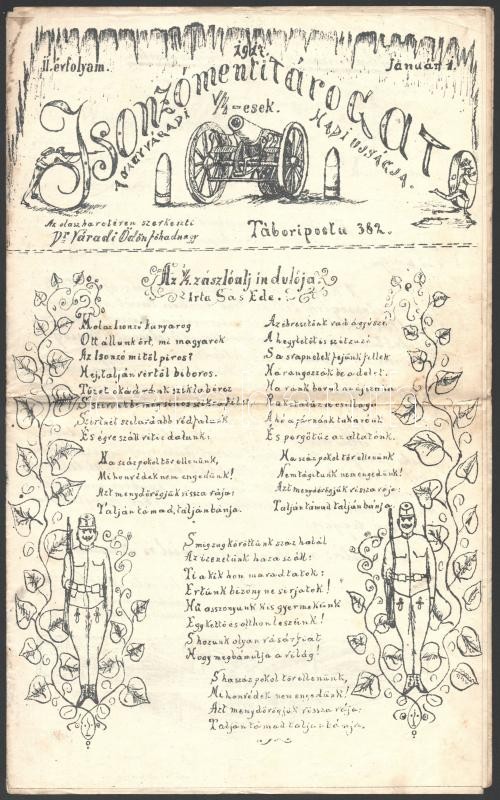 1917.
II. évfolyam.
Január 1.
Isonzómenti tárogató
A nagyváradi V/4-esek. Hadi ujságja.
Az olasz harctéren szerkeszti
Dr. Váradi Ödön főhadnagy
Táboriposta 382.
Az V/4. zászlóalj indulója.
Irta Sas Ede.
Hol az Isonzó kanyarog
Ott állunk őrt, mi magyarok
Az Isonzó mitől piros?
Hej, talján vértől bíboros.
Tüzet okád ránk szikla bérez
S
Szivünk szilárabb védfalunk
És égre száll vitéz dalunk:
Ha száz pokol tör ellenünk,
Mi honvédek nem engedünk!
Azt menydörögjük vissza rája:
Talján támad, talján bánja.
Az ébresztőnk vad ágyúsző
A hegytetőt is szétzuzó
S a srapnelek fejünk felett
Harangoznak be a delet.
Ha ránk borul az éjszaka
Rakéta láz a csillaga
A hó a párnánk takarónk
És pergőtűz az altatónk.
Ha száz pokol tör ellenünk
Nem tágítunk nem engedünk!
Azt menydörögjük vissza rája:
Talján támad, talján bánja
S míg zug köröttünk száz halál
Az üzenetünk haza száll:
Ti a kik hon maradtatok:
Értünk bizony ne sirjatok!
Hű asszonyunk kis gyermekünk
Egykettő és otthon leszünk!
S hozunk olyan vásárfiát
Hogy megbámulja a világ!
S ha száz pokol tör ellenünk,
Mi honvédek nem engedünk!
Azt menydörögjük vissza rája:
Talján támad talján bánja.